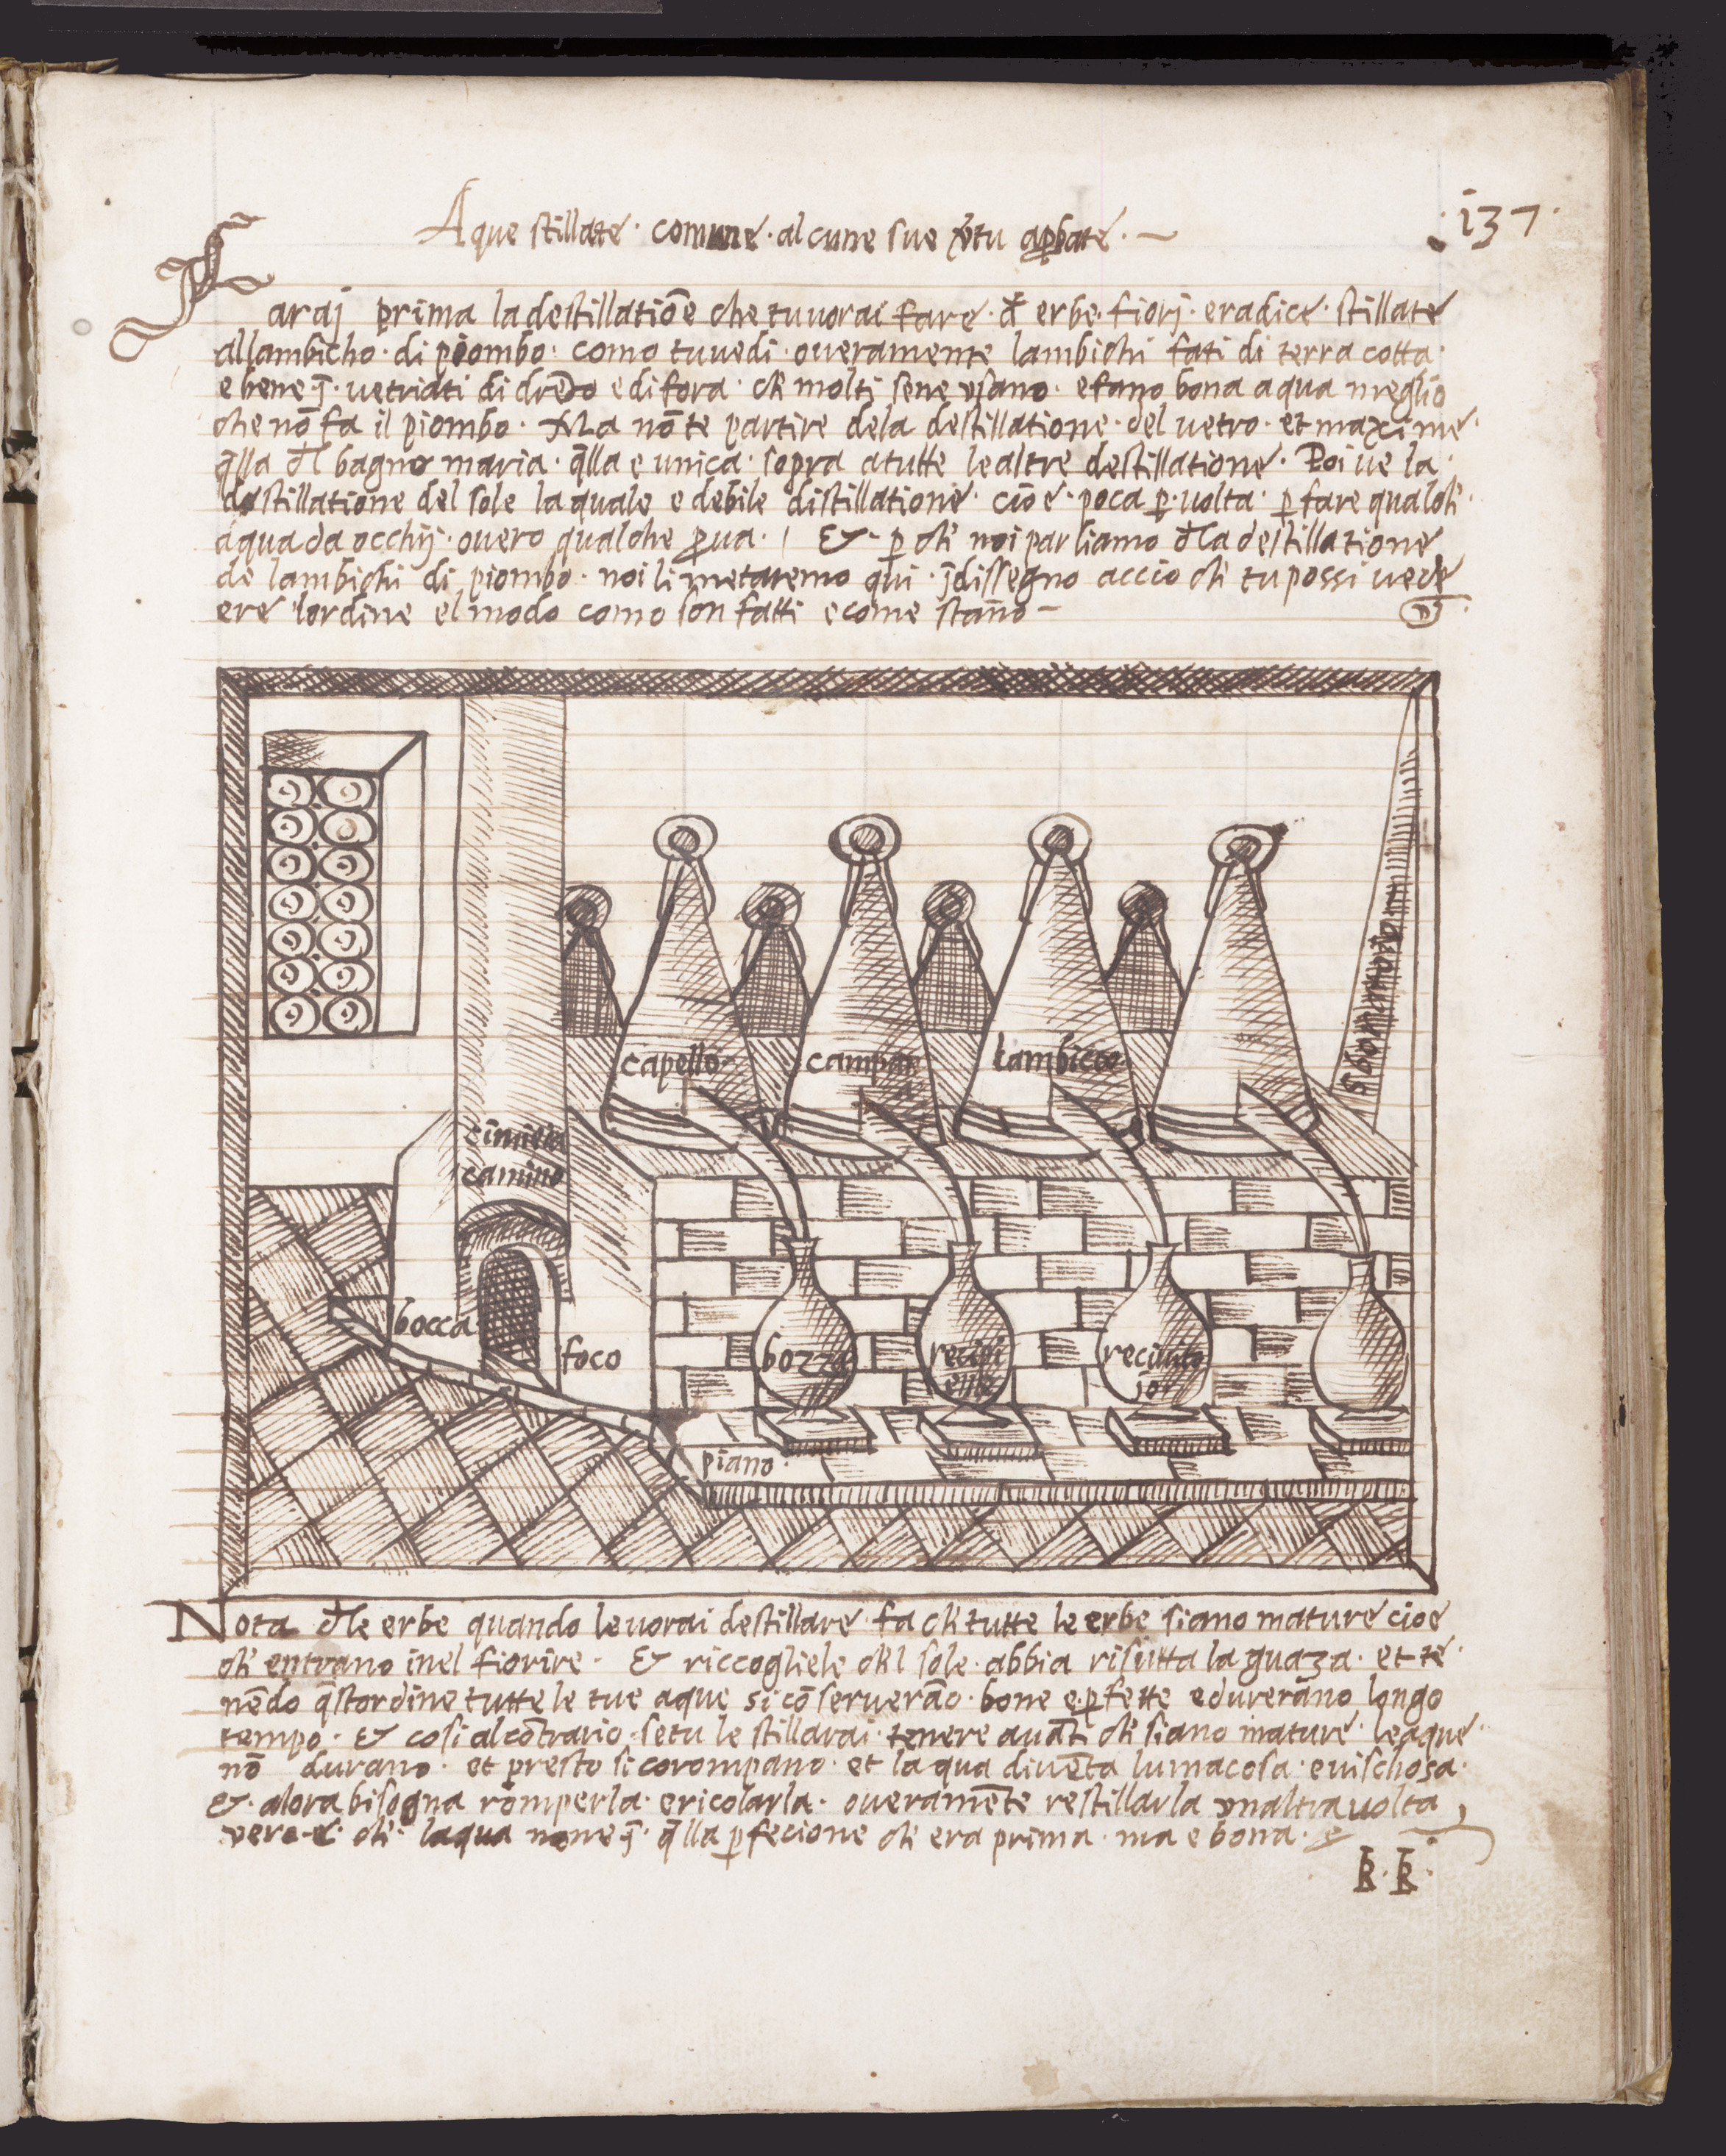 Aque stillate · comune · al cune sue v̄tu apbate · —
· 137 ·
Faraj prima la destillatiōe che tu uorai fare · đ erbe · fiorj · eradice · stillate
al lambicho · di piombo · como tu uedi · oueramente lambichi fati di terra cotta ·
e bene · uetriati di drēto e di fora · ch̄ molti sene vsano · e fano bona aqua meglio
che nō fa il piombo · Ma nō te partire dela destillatione · del uetro · et maxime ·
q̄lla đl bagno maria · q̄lla e unica · sopra a tutte le altre destillatione · Poi ue la
destillatione del sole la quale e debile distillatione · cioe · poca ꝑ uolta · ꝑ fare qualch̄ ·
aqua da occhij · ouero qualche ꝓua · / & · ꝑ ch̄ noi parliamo đla destillatione
de lambichi di piombo · noi li metaremo qui · j̄ dissegno accio ch̄ tu possi uede
ere lordine el modo como son fatti e come stano —
capello
campan
a
lambicco
cimina
camino
bocca
foco
bozza
recipi
ente
piano
Nota đle erbe quando le uorai destillare · fa ch̄ tutte le erbe siano mature cioe
ch̄ entrano inel fiorire · & riccogliele ch̄l sole · abbia risutta la guaza · et te
nēdo q̄stordine tutte le tue aque si cōserverāo · bone e ꝑfette e durerāno longo
tempo · & cosi al cōtrario · se tu le stillarai · tenere auāti ch̄ siano mature · le aque
nō durano · et presto si corompano · et laqua diuēta lumacosa · e uischosa ·
& · alora bisogna romperla · e ricolarla · oueramēte restillarla vnaltra uolta ,
vero e ch̄ laqua none j̄ q̄lla ꝑfecione ch̄ era prima · ma e bona ·